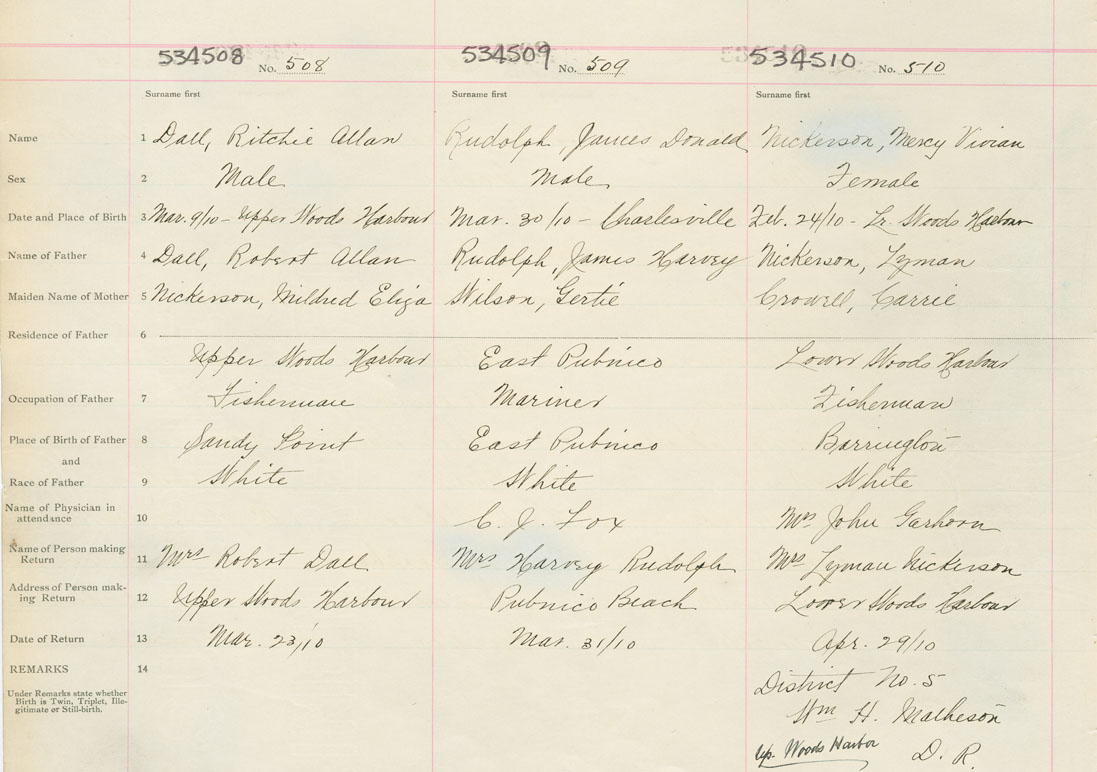 534508 No. 508 534509 No. 509 534510 No. 510
Surname first Surname first Surname first
Name 1 Dall, Ritchie Allan Rudolph, James Donald Nickerson, Mercy Vivian
Sex 2 Male Male Female
Date and Place of Birth 3 Mar. 9/10 - Upper Woods Harbour Mar. 30/10 - Charlesville Feb. 24/10 - Lr. Woods Harbour
Name of Father 4 Dall, Robert Allan Rudolph, James Harvey Nickerson, Lyman
Maiden Name of Mother 5 Nickerson, Mildred Eliza Wilson, Gertie Crowell, Carrie
Residence of Father 6
Upper Woods Harbour East Pubnico Lower Woods Harbour
Occupation of Father 7 Fisherman Mariner Fisherman
Place of Birth of Father 8 Sandy Point East Pubnico Barrington
and
Race of Father 9 White White White
Name of Physician in
attendance 10 C. J. Fox Mrs John
Name of Person making
Return 11 Mrs Robert Dall Mrs Harvey Rudolph Mrs Lyman Nickerson
Address of Person mak-
ing Return 12 Upper Woods Harbour Pubnico Beach Lower Woods Harbour
Date of Return 13 Mar. 23/10 Mar. 31/10 Apr. 29/10
REMARKS 14
Under Remarks state whether
Birth is Twin, Triplet, Ille-
gitimate or Still-birth.
District No. 5
Wm H. Matheson
Up. Woods Harbor D. R.